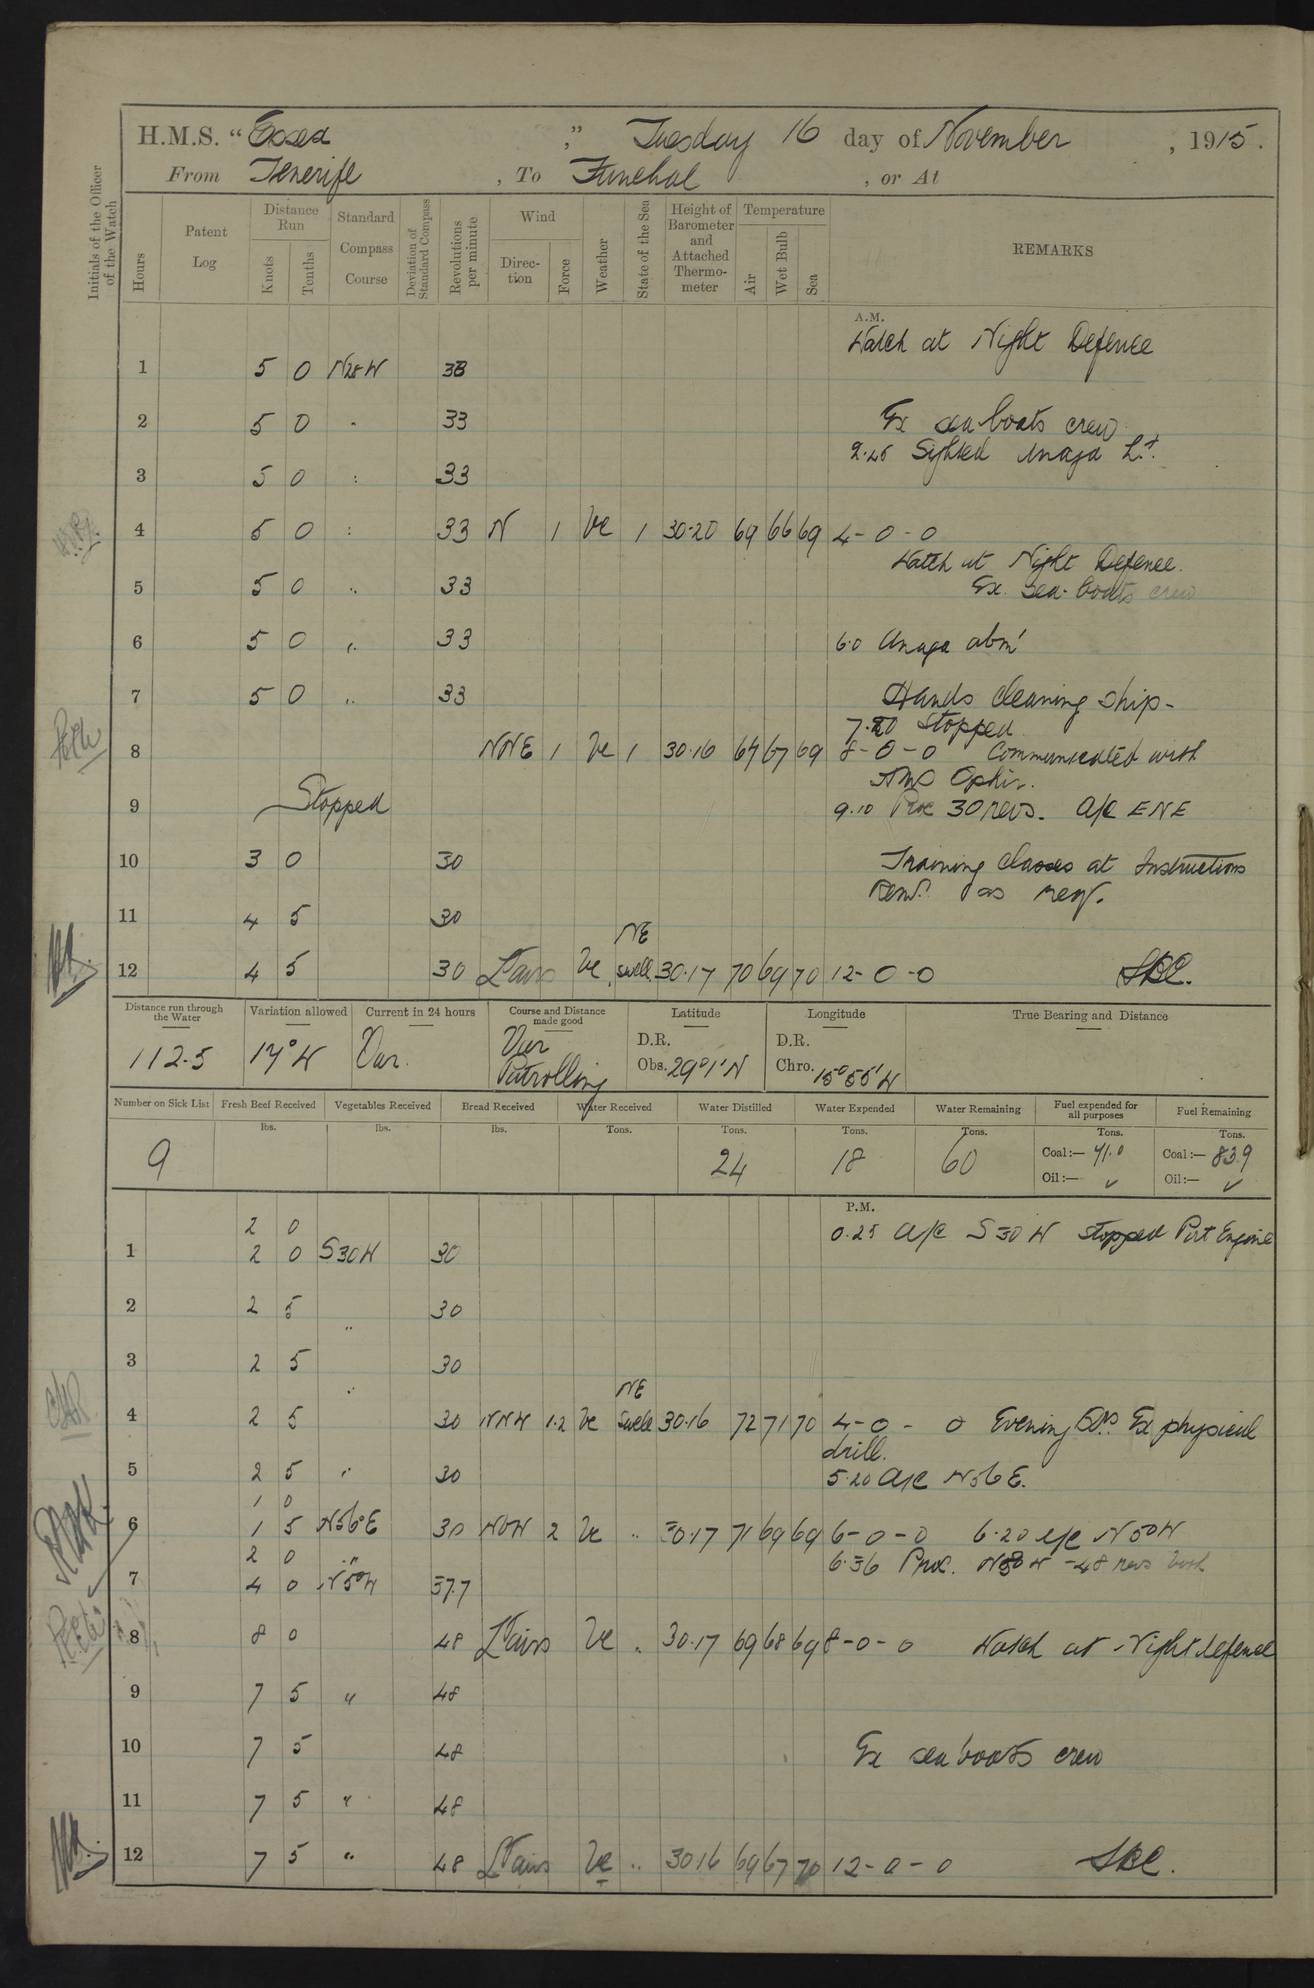 H.M.S. “ Essex ,” Tuesday 16 day of November , 1915.
From Tenerife , To Funchal , or At
Initials of the Officer of the Watch
Hours
Patent Log
Distance Run
Knots
Tenths
Standard Compass Course
Deviation of Standard Compass
Revolutions per minute
Wind
Direction
Force
Weather
State of the Sea
Height of Barometer and Attached Thermometer
Temperature
Air
Wet Bulb
Sea
REMARKS
A.M.
Watch at Night Defence
1 5 0 N28W 33
2 5 0 " 33 Ex sea boats crew
2.45 Sighted Anaga Lt.
3 5 0 : 33
4 5 0 : 33 N 1 bc 1 30.20 69 66 69 4-0-0
Watch at Night Defence.
5 5 0 " 33 Ex. Sea-boats crew
6 5 0 " 33 6.0 Anaga abm
7 5 0 " 33 Hands cleaning Ship-
7.20 Stopped
8 NNE 1 bc 1 30.16 67 67 69 8-0-0 Communicated with
HMS Ophir.
9 Stopped 9.10 Proc 30 revs. A/C ENE
10 3 0 30 Training Classes at Instructions
Remdr as req.
11 4 5 30
NE
12 4 5 30 Lt airs bc swell 30.17 70 69 70 12-0-0 SBC.
Distance run through the Water
Variation allowed
Current in 24 hours
Course and Distance made good
Latitude
Longitude
True Bearing and Distance
112.5 17°W Var. Var Patrolling
D.R.
Obs. 29°1'N
D.R.
Chro. 15°55'W
Number on Sick List
Fresh Beef Received
Vegetables Received
Bread Received
Water Received
Water Distilled
Water Expended
Water Remaining
Fuel expended for all purposes
Fuel Remaining
lbs. lbs. lbs. Tons. Tons. Tons. Tons. Tons. Tons.
9 24 18 60 Coal:— 41.0 Coal:— 839
Oil:— ✓ Oil:— ✓
P.M.
2 0 0.25 A/C S30W Stopped Port Engine
1 2 0 S30W 30
2 2 5 " 30
3 2 5 " 30
NE
4 2 5 30 NNW 1.2 bc Swell 30.16 72 71 70 4-0-0 Evening Qrs. Ex physical
drill.
5 2 5 " 30 5.20 A/C N56E.
1 0
6 1 5 N56°E 30 NWW 2 bc " 30.17 71 69 69 6-0-0 6.20 A/C N50W
2 0 " 6.36 Proc. N50W -48 revs both
7 4 0 N50W 37.7
8 8 0 48 Lt airs bc " 30.17 69 68 69 8-0-0 Watch at Night defence
9 7 5 " 48
10 7 5 48 Ex sea boats crew
11 7 5 " 48
12 7 5 " 48 Lt airs bc " 30.16 69 67 70 12-0-0 SBC.